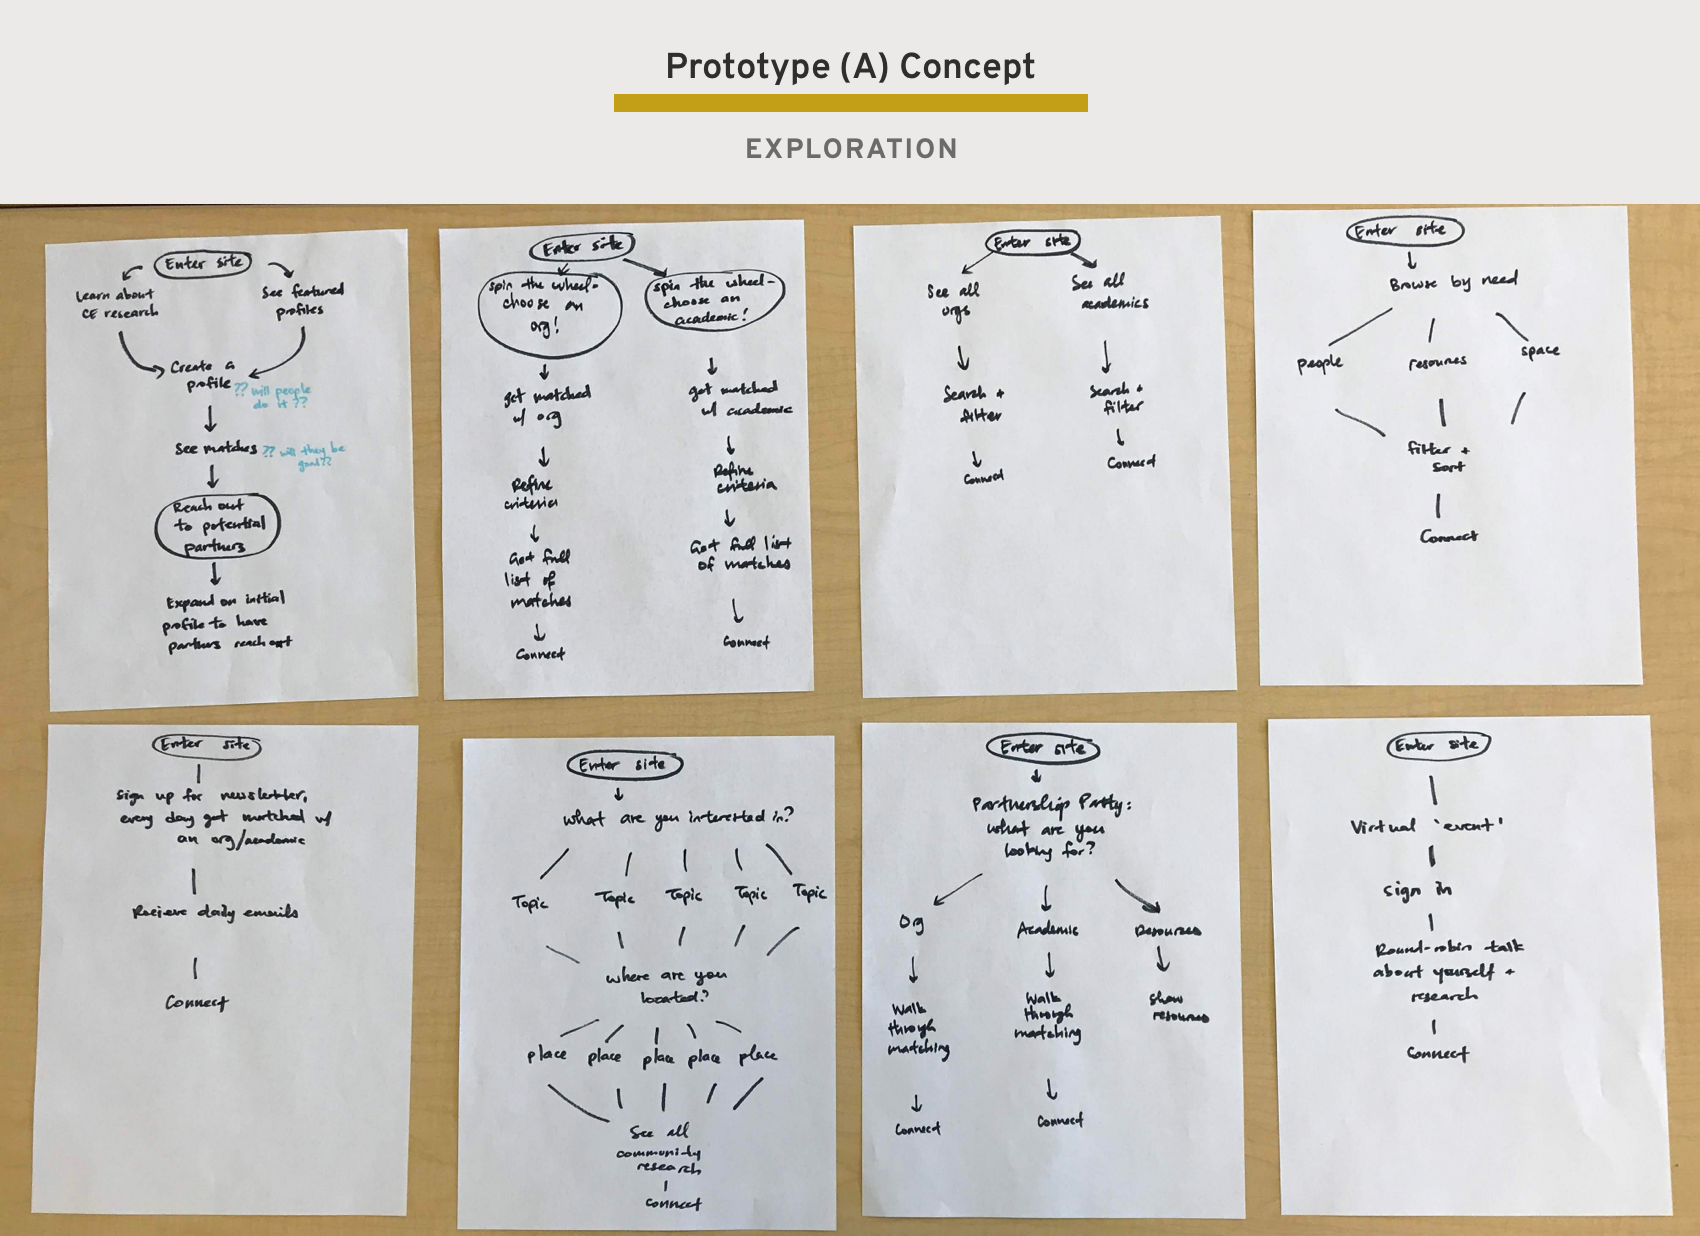 Prototype (A) Concept
EXPLORATION
Enter site
Learn about
CE research
See featured
profiles
Create a
profile
?? will people
do it ??
See matches
?? will they be
good??
Reach out
to potential
partners
Expand on initial
profile to have
partners reach out
Enter site
spin the wheel-
choose an
org!
spin the wheel-
choose an
academic!
get matched
w/ org
get matched
w/ academic
Refine
criteria
Refine
criteria
Get full
list of
matches
Get full list
of matches
Connect
Connect
Enter site
See all
orgs
See all
academics
Search +
filter
Search +
filter
Connect
Connect
Enter site
Browse by need
people
resources
space
filter +
sort
Connect
Enter site
Sign up for newsletter,
every day get matched w/
an org/academic
Recieve daily emails
Connect
Enter site
What are you interested in?
Topic
Topic
Topic
Topic
Topic
where are you
located?
place
place
place
place
place
See all
community
research
Connect
Enter site
Partnership Party:
what are you
looking for?
Org
Academic
Resources
Walk
through
matching
Walk
through
matching
show
resources
Connect
Connect
Enter site
Virtual 'event'
Sign in
Round-robin talk
about yourself +
research
Connect